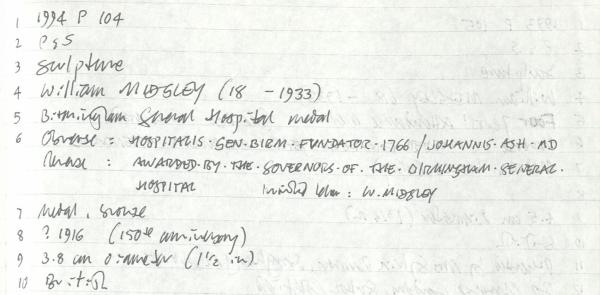 1 1994 P 104
2 P&S
3 Sculpture
4 William MIDGLEY (18 - 1933)
5 Birmingham General Hospital medal
6 Obverse : HOSPITALIS·GEN·BIRM·FUNDATOR·1766/JOHANNIS·ASH·MD
Reverse : AWARDED·BY·THE·GOVERNORS·OF·THE·BIRMINGHAM·GENERAL·
HOSPITAL : W. MIDGLEY
7 Metal, bronze
8 ? 1916 (150th anniversary)
9 3.8 cm diameter (1½ in)
10 British